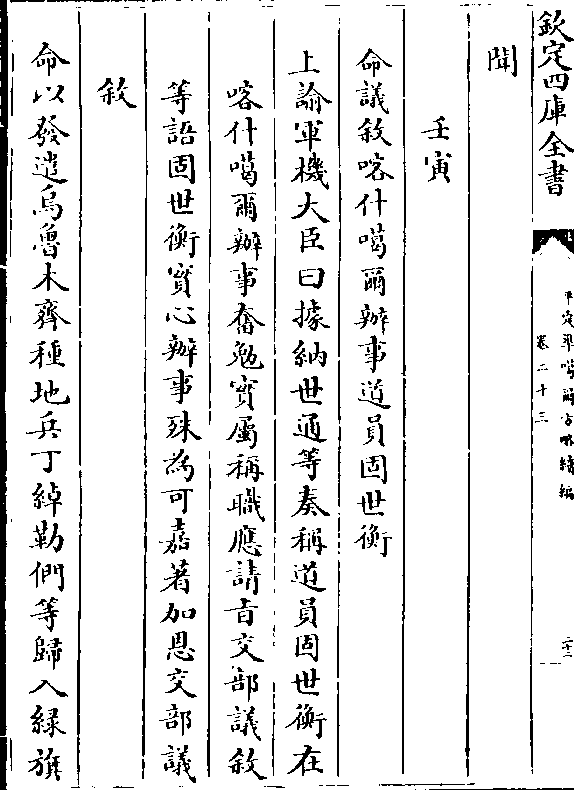 欽定四庫全書
平定凖噶爾方略續編
卷二十三
二十二
聞
壬寅
命議敘喀什噶爾辦事道員固世衡
上諭軍機大臣曰據納世通等奏稱道員固世衡在
喀什噶爾辦事奮勉實屬稱職應請旨交部議敘
等語固世衡實心辦事殊為可嘉著加恩交部議
敘
命以發遣烏魯木齊種地兵丁綽勒們等歸入綠旗